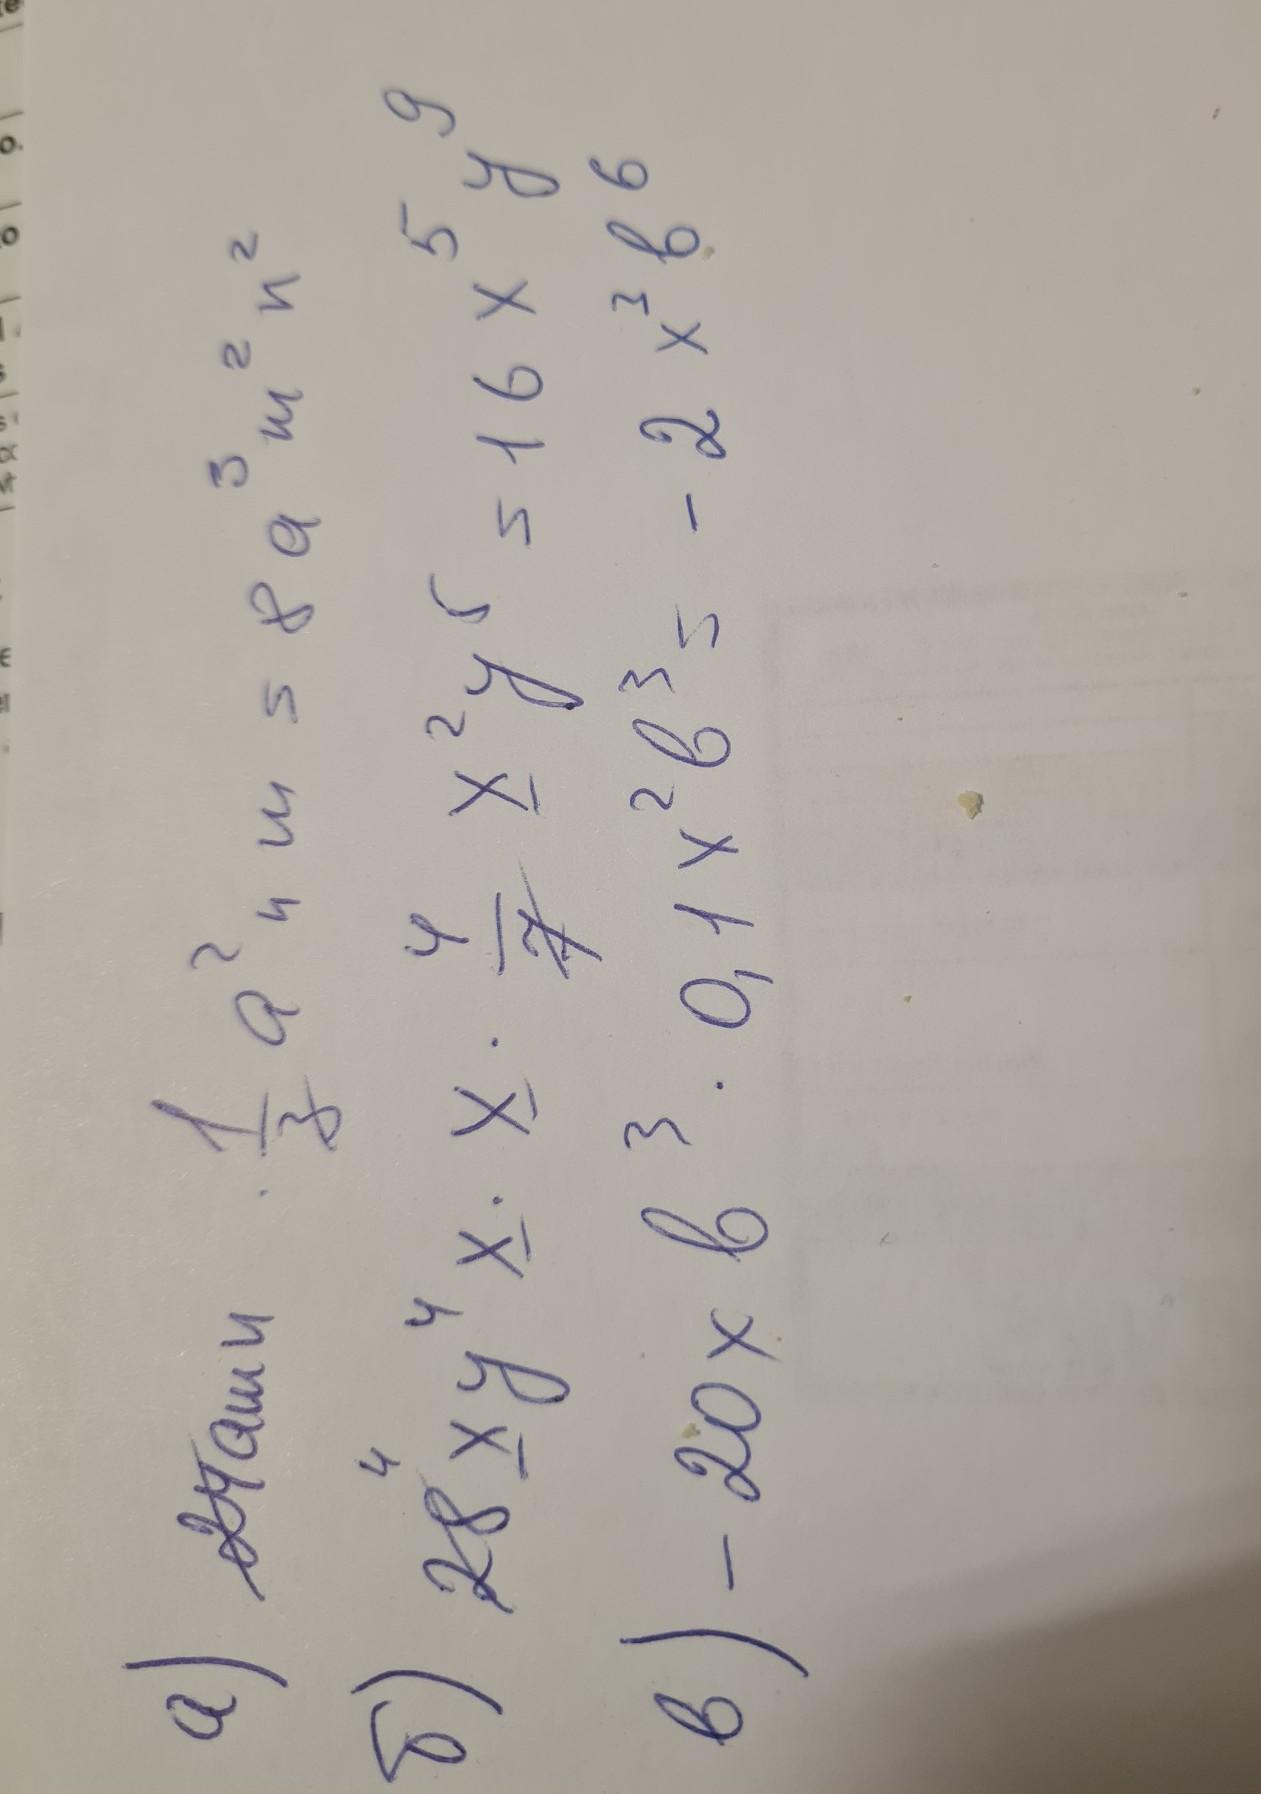 а) 24amn · 1/3 a²nm = 8a³m²n²
б) 28⁴xy⁴x · x · 4/7 x²y⁵ = 16x⁵y⁹
в) -20xb³ · 0,1x²b³ = -2x³b⁶